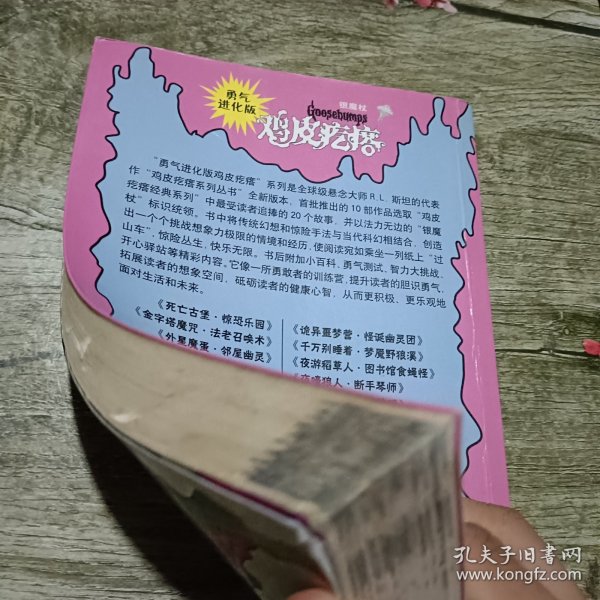 勇气
进化版
银魔杖
Goosebumps
鸡皮疙瘩
“勇气进化版鸡皮疙瘩”系列是全球级悬念大师R.L.斯坦的代表
作“鸡皮疙瘩系列丛书”全新版本，首批推出的10部作品选取“鸡皮
疙瘩经典系列”中最受读者追捧的20个故事，并以法力无边的“银魔
杖”标识统领。书中将传统幻想和惊险手法与当代科幻相结合，创造
出一个个挑战想象力极限的情境和经历，使阅读宛如乘坐一列纸上“过
山车”，惊险丛生，快乐无限。书后附加小百科、勇气测试、智力大挑战、
开心驿站等精彩内容。它像一所勇敢者的训练营，提升读者的胆识勇气，
拓展读者的想象空间，砥砺读者的健康心智，从而更积极、更乐观地
面对生活和未来。
《死亡古堡·惊恐乐园》
《金字塔魔咒·法老召唤术》
《外星魔蛋·邻屋幽灵》
《诡异噩梦营·怪诞幽灵团》
《千万别睡着·梦魇野狼溪》
《夜游稻草人·图书馆食蝇怪》
狼人·断手琴师》
孔夫子旧书网
www.kongfz.com